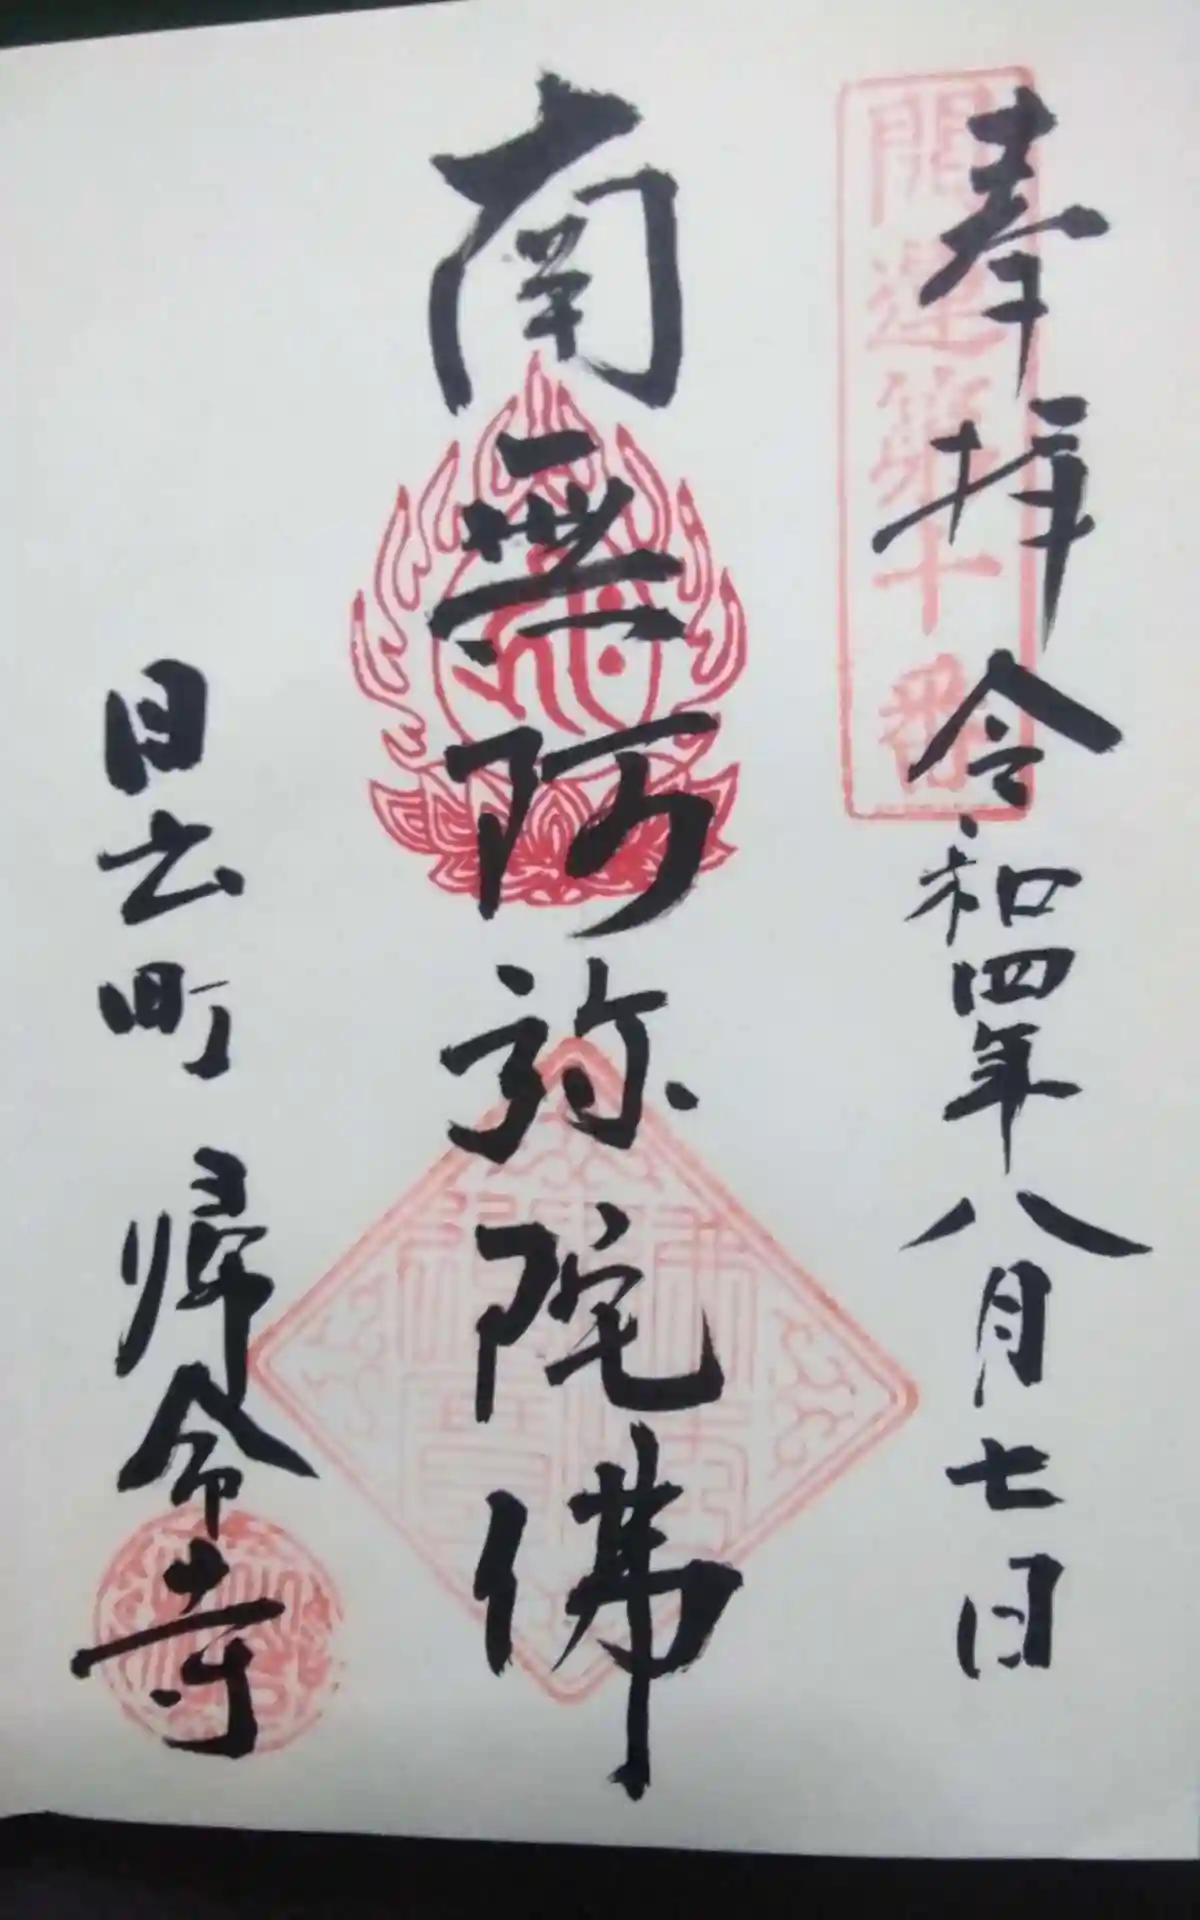 奉拝 令和四年八月七日
開運第十番
南無阿弥陀佛
日出町 帰命寺